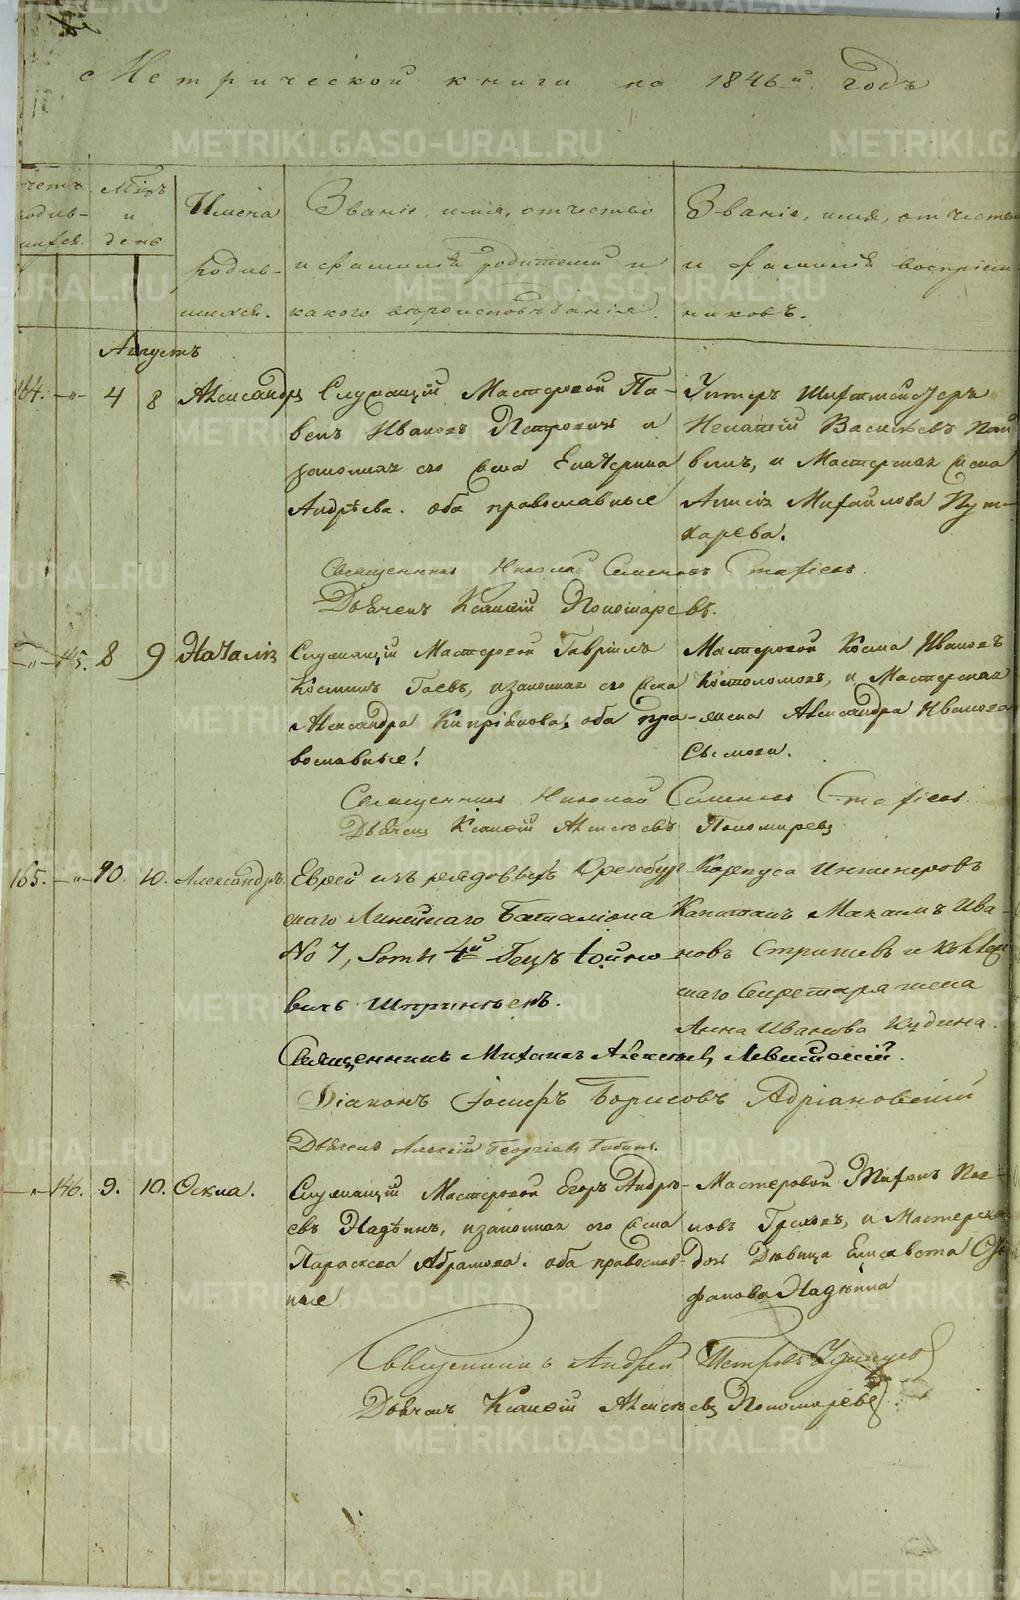 Метрической книги на 1846й годъ
Счетъ родив-шихся.
Мѣсяцъ и день
Имена родив-шихся.
Званіе, имя, отчество и фамилія родителей и какого вѣроисповѣданія.
Званіе, имя, отчество и фамилія воспріем-никовъ.
Августъ
164. —"— 4 8 Александръ
Служащій Мастеровой Па-
велъ Ивановъ Петровыхъ и
законная его жена Екатерина
Андрѣева. оба православные
Унтеръ Шихтмейстеръ
Игнатій Васильевъ
и Мастерская жена
Михайлова Пуш-
карева.
Священникъ Николай Семеновъ
Дьячекъ Ксанфій Пономаревъ.
—"— 145. 8 9 Наталія
Служащій Мастеровой Гавріилъ
Косминъ Гаевъ, и законная его жена
Александра Кипріянова, оба пра-
вославные!
Мастеровой Косма Ивановъ
Костоломовъ, и Мастерская
жена Александра Иванова
Священникъ Николай Семеновъ
Дьячекъ Ксанфій Алексѣевъ Пономаревъ
165. —"— 10 10. Александръ.
Еврей изъ рядовыхъ Оренбург-
скаго Линейнаго Баталіона
No 7, 4й
вичь
Корпуса Инженеровъ
Капитанъ Максимъ Ива-
новъ Стрижевъ и
скаго Секретаря жена
Анна Иванова Кудина.
Священникъ Михаилъ Алексѣевъ Левитскій.
Діаконъ Іосифъ Борисовъ Адріановскій
Дьячекъ Алексій Георгіевъ Бабинъ.
—"— 146. 9. 10. Оекла.
Служащій Мастеровой Егоръ Андрѣ-
евъ Надѣинъ, и законная его жена
Параскева Абрамова. оба православ-
ные
Мастеровой
новъ и Мастерска
Дѣвица Елисавета Сте
фанова Надѣина
Священникъ Андрей Петровъ Удинцовъ
Дьячекъ Ксанфій Алексѣевъ Пономаревъ
METRIKI.GASO-URAL.RU